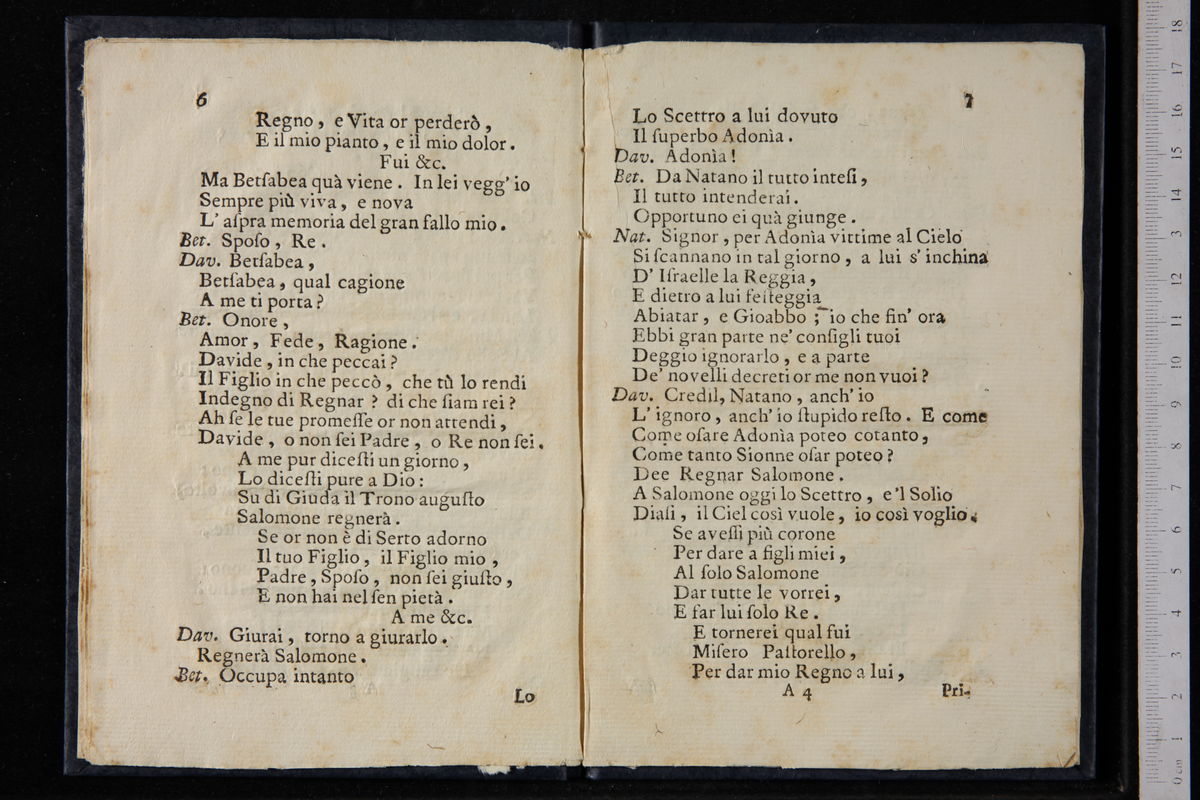 6
Regno, e Vita or perderò,
E il mio pianto, e il mio dolor.
Fui &c.
Ma Betſabea quà viene. In lei vegg' io
Sempre più viva, e nova
L' aſpra memoria del gran fallo mio.
Bet. Spoſo, Re.
Dav. Betſabea,
Betſabea, qual cagione
A me ti porta?
Bet. Onore,
Amor, Fede, Ragione.
Davide, in che peccai?
Il Figlio in che peccò, che tù lo rendi
Indegno di Regnar? di che ſiam rei?
Ah ſe le tue promeſſe or non attendi,
Davide, o non ſei Padre, o Re non ſei.
A me pur diceſti un giorno,
Lo diceſti pure a Dio:
Su di Giuda il Trono auguſto
Salomone regnerà.
Se or non è di Serto adorno
Il tuo Figlio, il Figlio mio,
Padre, Spoſo, non ſei giuſto,
E non hai nel ſen pietà.
A me &c.
Dav. Giurai, torno a giurarlo.
Regnerà Salomone.
Bet. Occupa intanto
Lo
7
Lo Scettro a lui dovuto
Il ſuperbo Adonìa.
Dav. Adonìa!
Bet. Da Natano il tutto inteſi,
Il tutto intenderai.
Opportuno ei quà giunge.
Nat. Signor, per Adonìa vittime al Cielo
Si ſcannano in tal giorno, a lui s' inchina
D' Iſraelle la Reggia,
E dietro a lui feſteggia
Abiatar, e Gioabbo; io che fin' ora
Ebbi gran parte ne' conſigli tuoi
Deggio ignorarlo, e a parte
De' novelli decreti or me non vuoi?
Dav. Credil, Natano, anch' io
L' ignoro, anch' io ſtupido reſto. E come
Come oſare Adonìa poteo cotanto,
Come tanto Sionne oſar poteo?
Dee Regnar Salomone.
A Salomone oggi lo Scettro, e'l Solio
Diaſi, il Ciel così vuole, io così voglio.
Se aveſſi più corone
Per dare a figli miei,
Al ſolo Salomone
Dar tutte le vorrei,
E far lui ſolo Re.
E tornerei qual fui
Miſero Paſtorello,
Per dar mio Regno a lui,
A 4 Pri-
0 cm 1 2 3 4 5 6 7 8 9 10 11 12 13 14 15 16 17 18